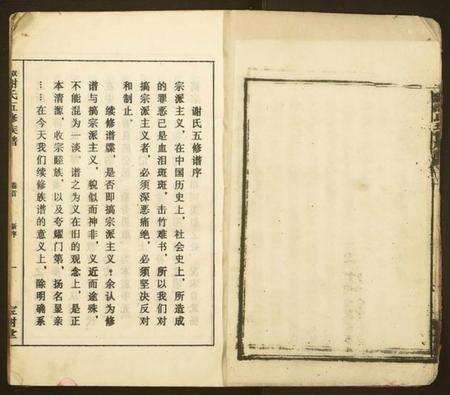 谢氏五修谱序
宗派主义，在中国历史上，社会史上，所造成
的罪恶已是血泪斑斑，击竹难书，所以我们对
搞宗派主义者，必须深恶痛绝，必须坚决反对
和制止。
续修谱牒，是否即搞宗派主义？余认为修
谱与搞宗派主义，貌似而神非，义近而途殊，
不能混为一谈，谱之为义在旧的观念上，是正
本清源，收宗睦族，以及夸耀门第，扬名显亲
⋯⋯在今天我们续修族谱的意义上，除明确系
谢氏五修族谱
卷首
新序
一